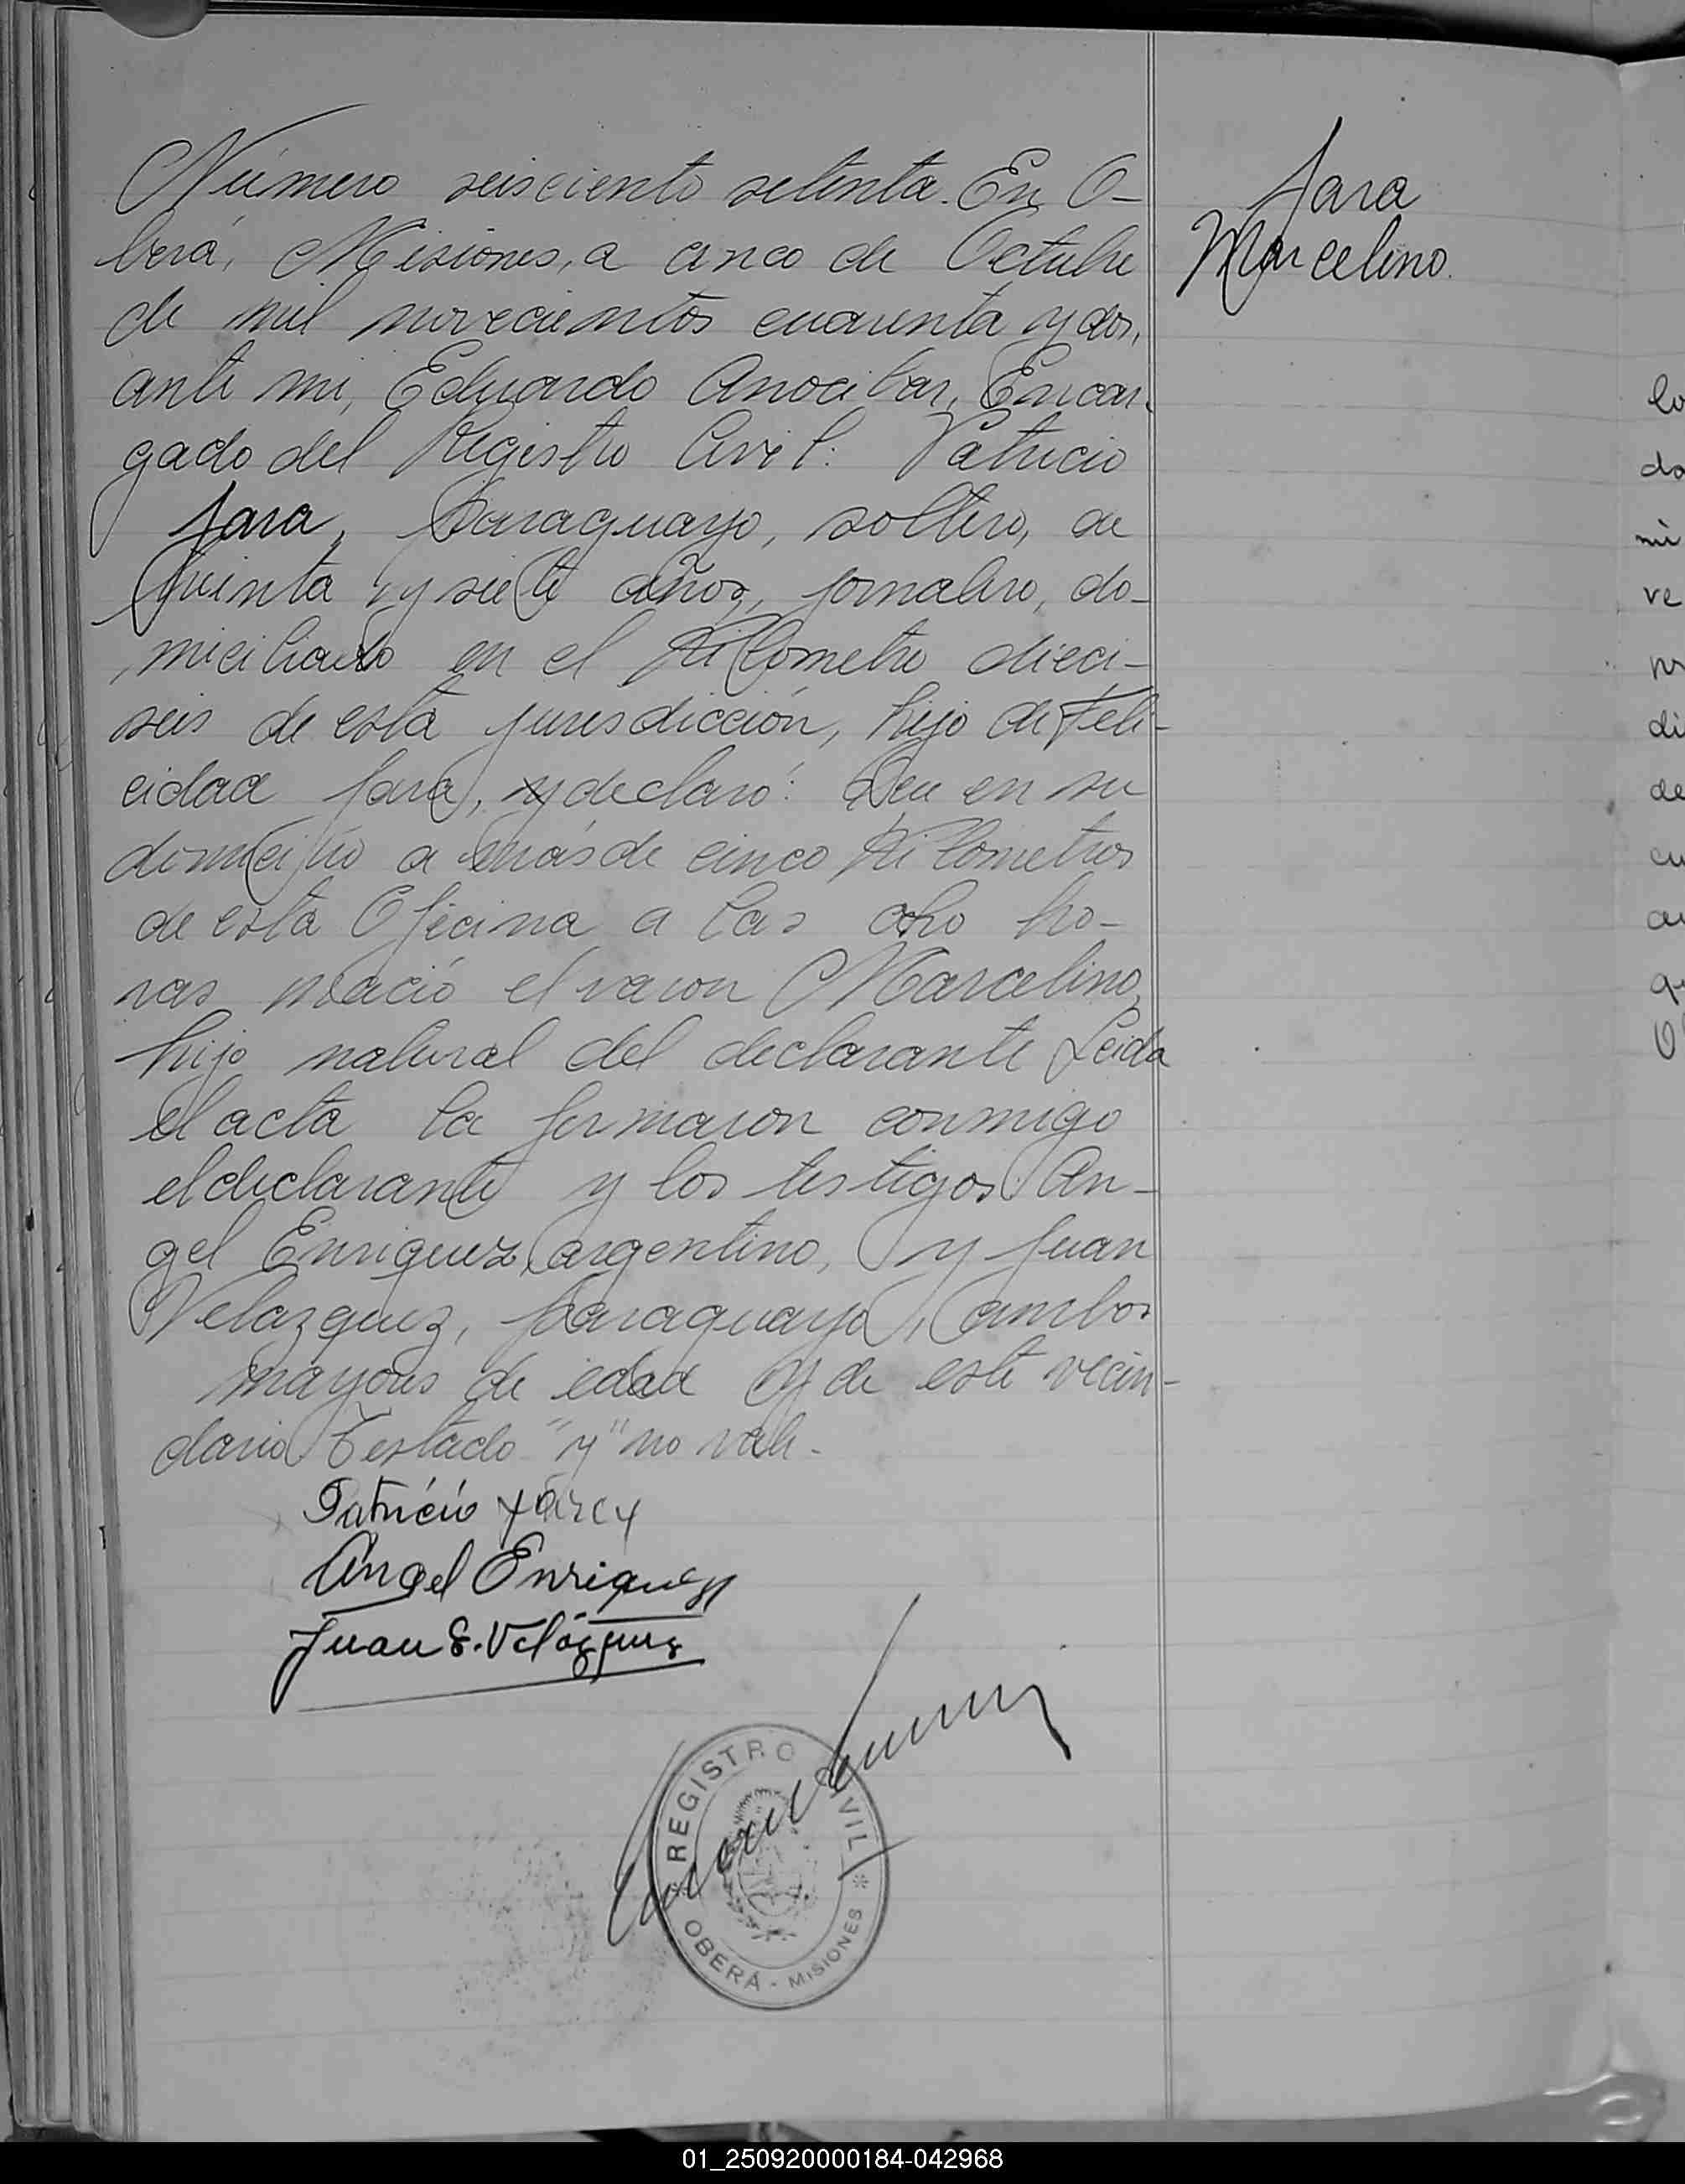 Número seisciento setenta. En O-
berá, Misiones, a cinco de Octubre
de mil novecientos cuarenta y dos,
ante mi, Eduardo Anocibar, Encar-
gado del Registro Civil: Patricio
Jara, paraguayo, soltero, de
treinta y siete años, jornalero, do-
miciliado en el Kilometro dieci-
seis de esta jurisdicción, hijo de Feli-
cidad Jara, y declaró: Que en su
domicilio a más de cinco Kilometros
de esta Oficina a las ocho ho-
ras nació el varon Marcelino,
hijo natural del declarante Leida
el acta la firmaron conmigo
el declarante y los testigos An-
gel Enriquez, argentino, y Juan
Velazquez, paraguayo, ambos
mayores de edad y de este vecin-
dario Testado "y" no vale-
Jara
Marcelino.
Patricio Jara
Angel Enriquez
Juan S. Velázquez
REGISTRO CIVIL
OBERÁ - MISIONES
lo
do
mi
ve
di
de
cu
01_250920000184-042968